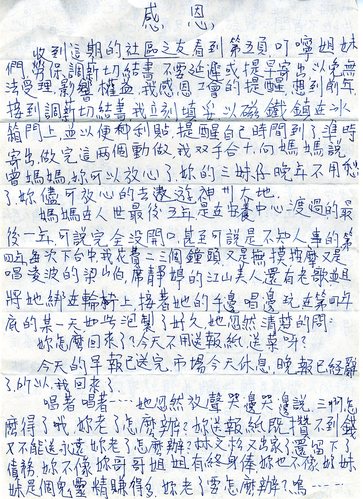 感恩
收到這期的社區之友看到第五項叮嚀姐妹
們勞保調薪切結書不要延遲或提早寄出以免無
法受理影響權益我感恩工會的提醒想到前年
接到調薪切結書我立刻填妥以磁鐵鎮在冰
箱門上並以便利貼提醒自己時間到了準時
寄出做完這兩個動做我双手合十向媽媽說
曾媽媽妳可以放心了妳的三妹仔晚年不用愁
了妳儘可放心的去遨遊神州大地
媽媽在人世最後五年是在安養中心渡過的最
後一年可說完全没開口甚至可說是不知人事的第
四年每次下台中我花着二三個鐘頭又是無摸她摩又是
唱凌波的梁山伯席靜婷的江山美人還有老歌並且
將她綁在輪椅上接著她的手邊唱邊玩在第四年
底的某一天如此泡製了好久她忽然清楚的問:
妳怎麼回來了?今天不用送報紙送菜呀?
今天的早報已送完市場今天休息晚報已經辭
了所以我回來了
唱着唱着……她忽然放聲哭邊哭邊說三妹仔
麼得了哦妳老了怎麼辦?妳送報紙既攢不到錢
又不能送永遠妳老了怎麼辦?林文松又出家了還留下了
債務妳不像妳哥哥姐姐有終身俸妳也不像妳妹
妹是個鬼靈精賺得多妳老了要怎麼辦?嗚……